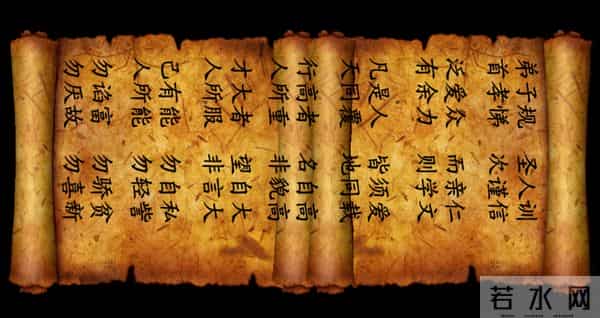 弟子规 圣人训
首孝悌 次谨信
泛爱众 而亲仁
有余力 则学文
凡是人 皆须爱
天同覆 地同载
行高者 名自高
人所重 非貌高
才大者 望自大
人所服 非言大
己有能 勿自私
人所能 勿轻訾
勿谄富 勿骄贫
勿厌故 勿喜新
若水网